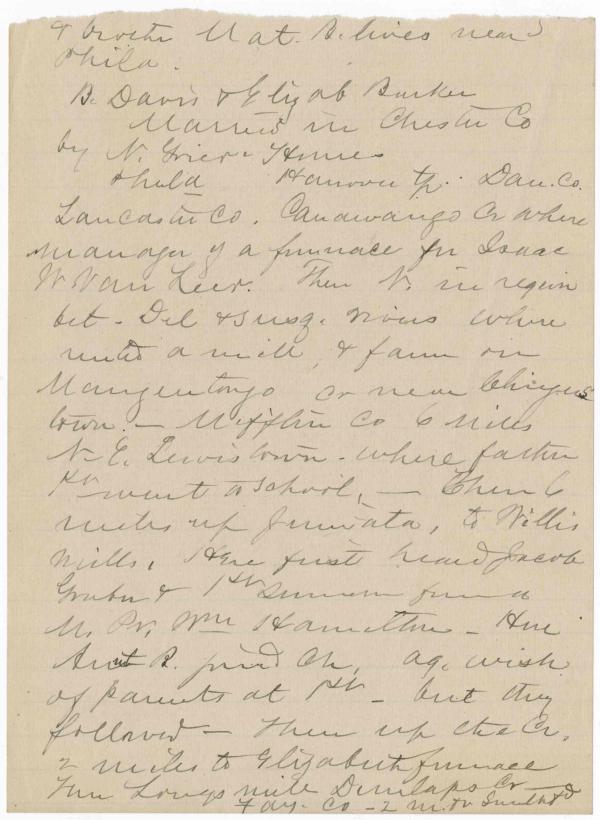 & brother Nat. B. lives near
Phila.
B. Davis & Elizab Barker
Married in Chester Co
by N. Grier - Homes
Phila Hanover tp. Dau. Co.
Lancaster Co. Canawango Cr where
manager of a furnace for Isaac
W Van Leer. Then N. in region
bet - Del & Susq. rivers where
rented a mill, & farm on
Mangentongo cr near
town. - Mifflin Co 6 miles
N. E. Lewistown - where father
1st went to school, - Then 6
miles up Juniata, to Willis
Mills, Here first heard Jacob
Gruber & 1st sermon from a
M. Pr. Wm Hamilton - Here
Aunt B. joined Ch, ag. wish
of parents at 1st - but they
followed - Then up the Cr.
2 miles to Elizabeth furnace
Then Longs mill Dunlaps Cr
Fay. Co - 2 m. fr